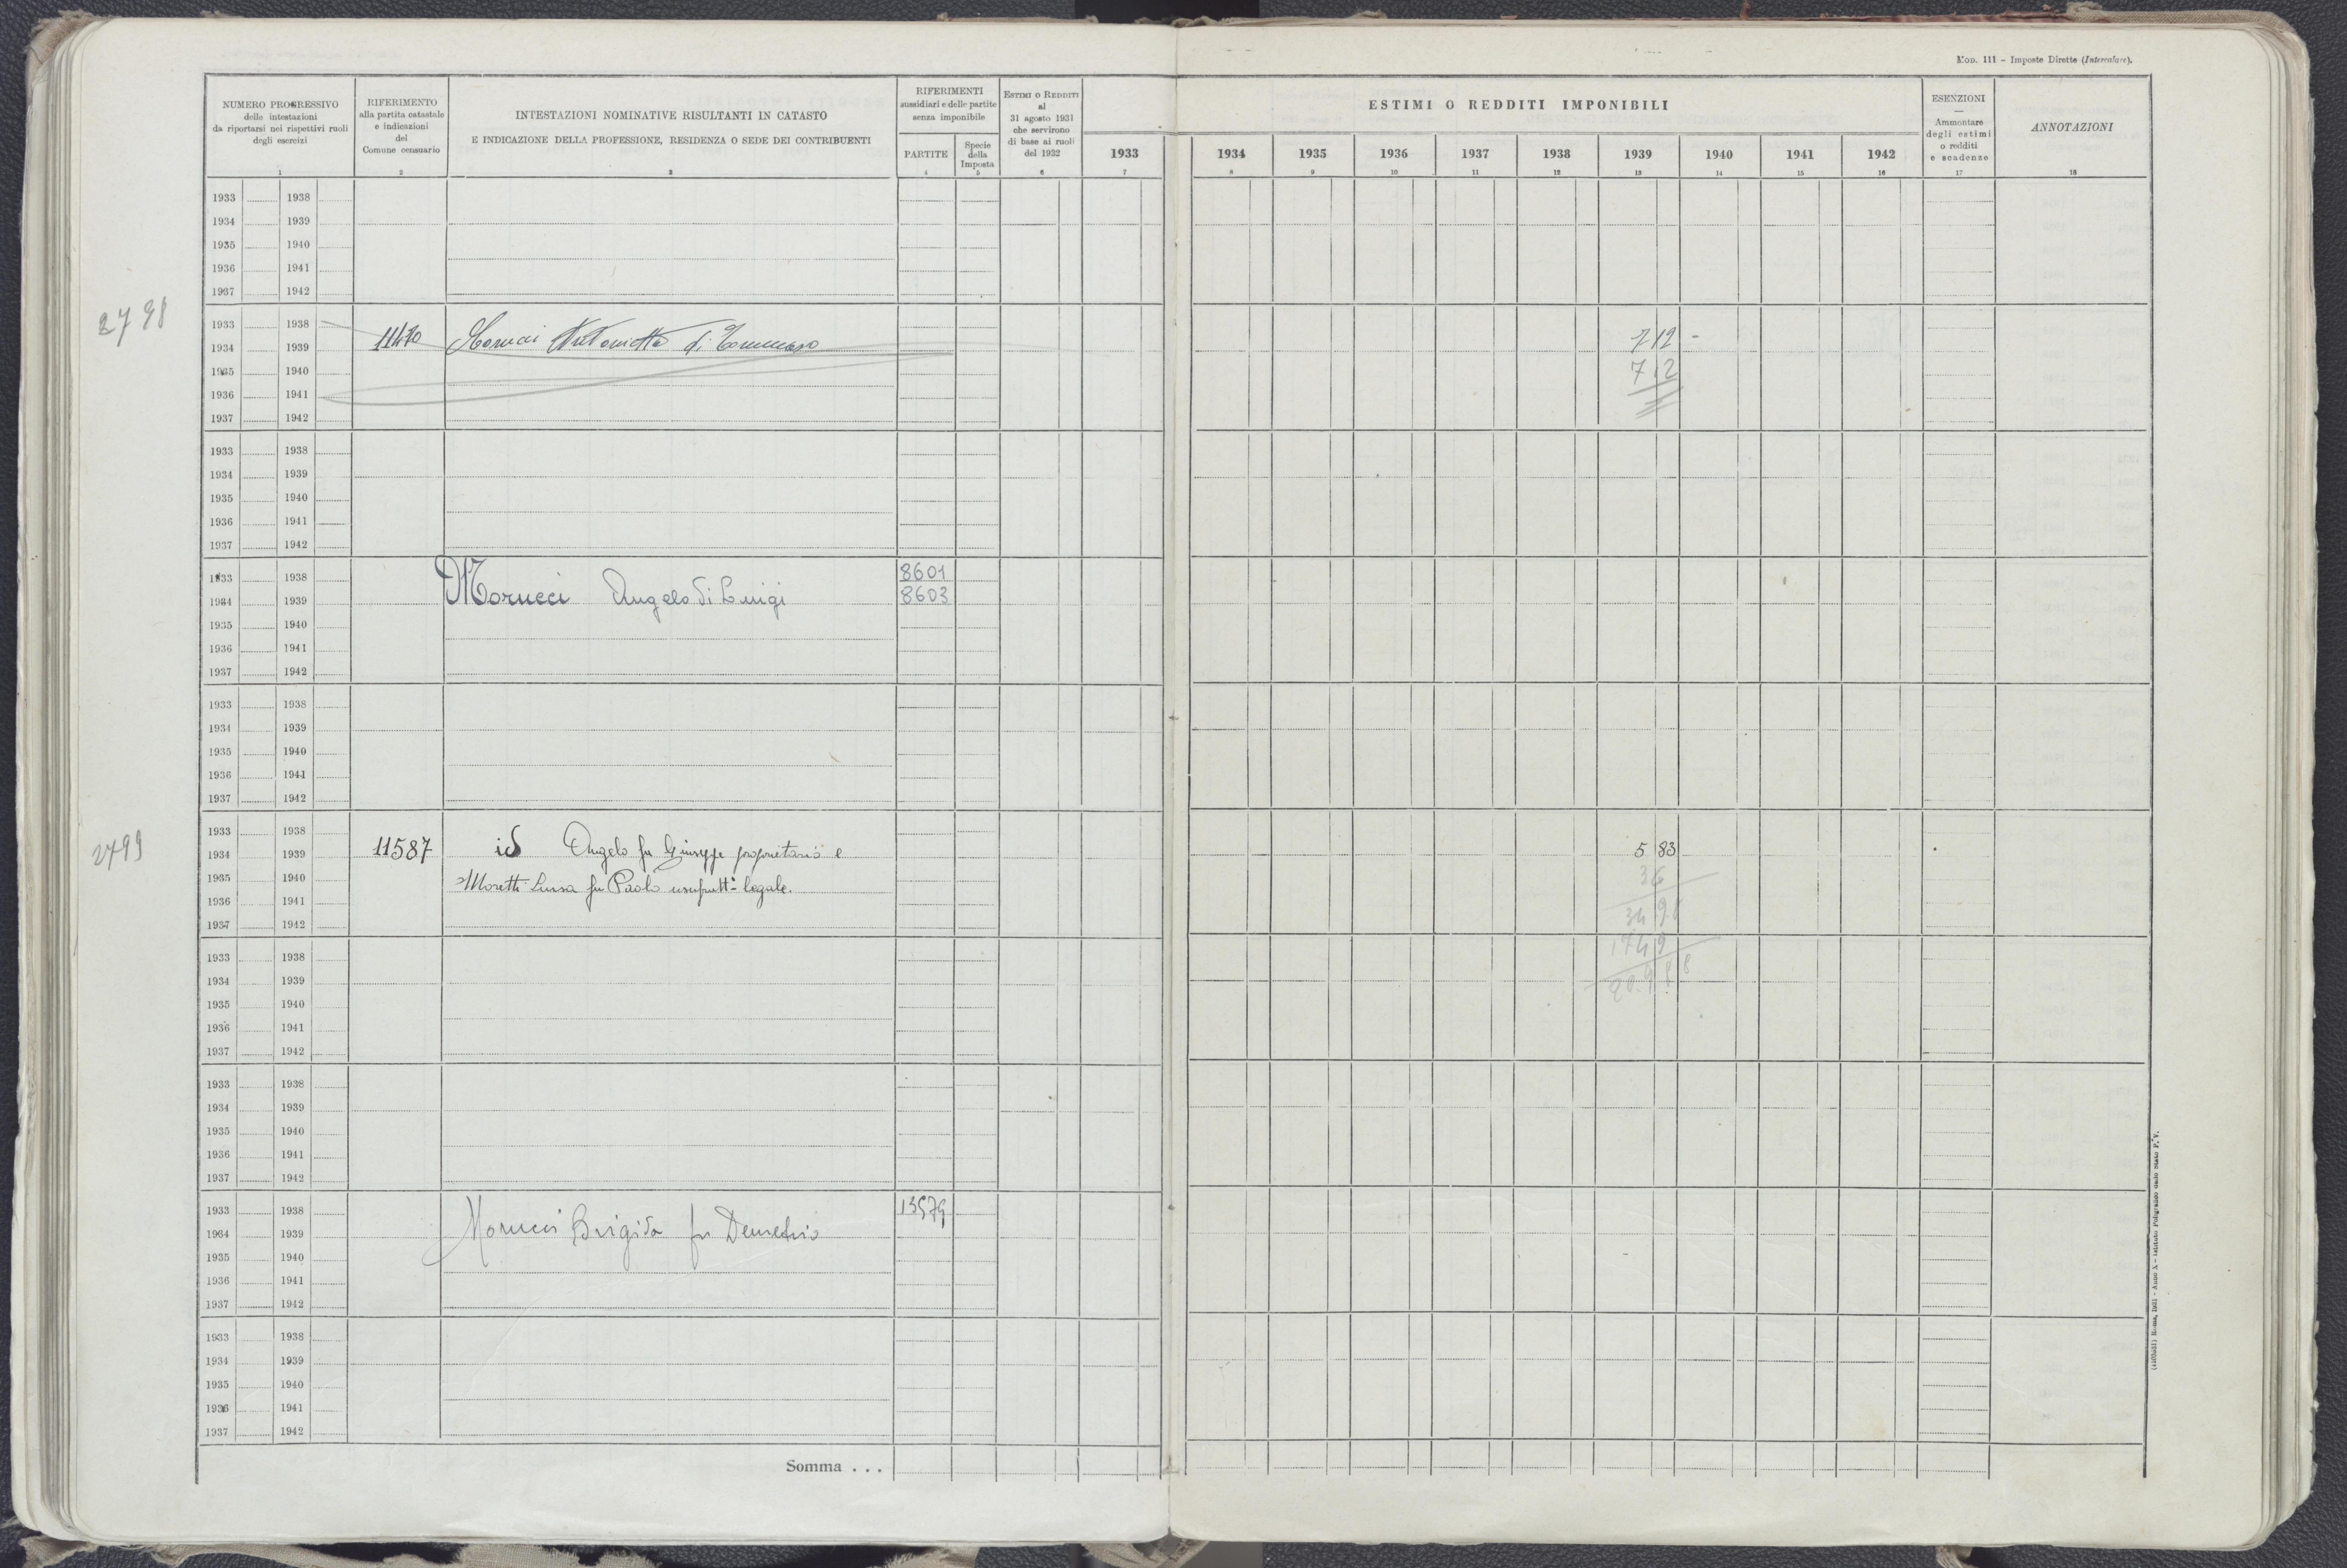 Mod. 111 - Imposte Dirette (Intercalare).
NUMERO PROGRESSIVO
delle intestazioni
da riportarsi nei rispettivi ruoli
degli esercizi
1
RIFERIMENTO
alla partita catastale
e indicazioni
del
Comune censuario
2
INTESTAZIONI NOMINATIVE RISULTANTI IN CATASTO
E INDICAZIONE DELLA PROFESSIONE, RESIDENZA O SEDE DEI CONTRIBUENTI
3
RIFERIMENTI
sussidiari e delle partite
senza imponibile
PARTITE
4
Specie
della
Imposta
5
ESTIMI O REDDITI
al
31 agosto 1931
che servirono
di base ai ruoli
del 1932
6
ESTIMI O REDDITI IMPONIBILI
1933 1934 1935 1936 1937 1938 1939 1940 1941 1942
7 8 9 10 11 12 13 14 15 16
ESENZIONI
—
Ammontare
degli estimi
o redditi
e scadenze
17
ANNOTAZIONI
18
1933 1938
1934 1939
1935 1940
1936 1941
1937 1942
2798
1933 1938
1934 1939 11470 Morucci Antonietta di Tommaso 7 12 -
1935 1940 7 12
1936 1941
1937 1942
1933 1938
1934 1939
1935 1940
1936 1941
1937 1942
1933 1938 8601
1934 1939 Morucci Angelo di Luigi 8603
1935 1940
1936 1941
1937 1942
1933 1938
1934 1939
1935 1940
1936 1941
1937 1942
2799
1933 1938
1934 1939 11587 id Angelo fu Giuseppe proprietario e 5 83
1935 1940 Moretti Luisa fu Paolo usufrutt.ª legale. 36
1936 1941 34 98
1937 1942
1933 1938 174 9
1934 1939 20.9 8 8
1935 1940
1936 1941
1937 1942
1933 1938
1934 1939
1935 1940
1936 1941
1937 1942
1933 1938 13579
1964 1939 Morucci Brigida fu Demetrio
1935 1940
1936 1941
1937 1942
1933 1938
1934 1939
1935 1940
1936 1941
1937 1942
Somma . . .